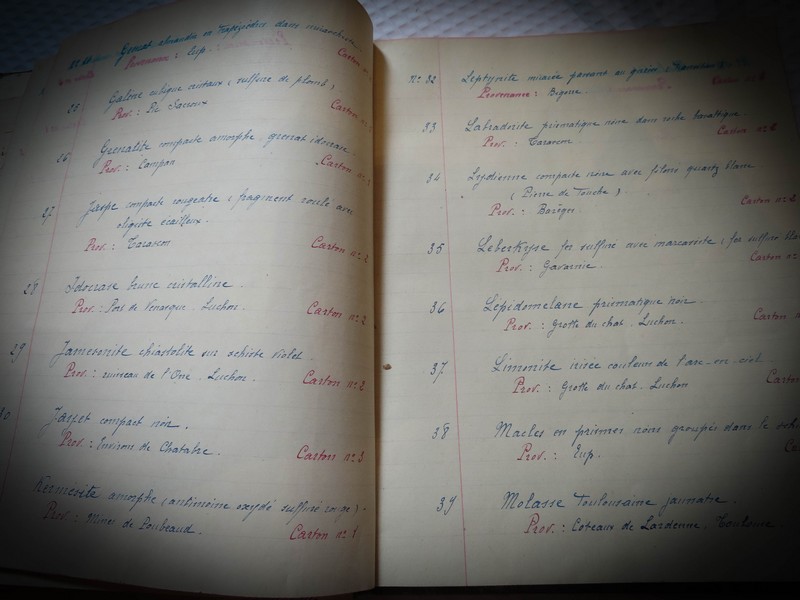 Grenat almandin en trapezoèdre dans
Provenance : Eup.
Carton n°
25 Galène cubique cristaux (sulfure de plomb)
Prov. : Pic Sacroux
Carton n°
26 Grenatite compacte amorphe, grenat idocrase
Prov. : Campan
Carton n° 1
27 Jaspe compacte rougeatre (fragment roulé avec
oligiste écailleux.
Prov. : Tarascon
Carton n° 2
28 Idocrase brune cristalline.
Prov. : Port de Venasque. Luchon.
Carton n° 2
29 Jamesonite chiastolite sur schiste violet.
Prov. : ruisseau de l'One. Luchon.
Carton n° 2
0 Jaspet compact noir.
Prov. : Environs de Chalabre.
Carton n° 3
Kermesite amorphe (antimoine oxydé sulfuré rouge).
Prov. : Mines de Poubeaud.
Carton n° 1
N° 32 Leptynite micacée passant au gneiss
Provenance : Bigorre.
33 Labradorite prismatique noire dans roche
Prov. : Tarascon
Carton n° 2
34 Lydienne compacte noire avec filons quartz blanc
(Pierre de Touche).
Prov. : Barèges
Carton n° 2
35 Leberkyse fer sulfuré avec marcassite (fer sulfuré
Prov. : Gavarnie.
Carton n°
36 Lépidomélane prismatique noir.
Prov. : Grotte du chat. Luchon.
Carton n
37 Limonite irisée couleurs de l'arc-en-ciel
Prov. : Grotte du chat. Luchon
Carton
38 Macles en prismes noirs groupés dans le
Prov. : Eup.
39 Molasse Toulousaine jaunatre.
Prov. : Coteaux de Lardenne. Toulouse